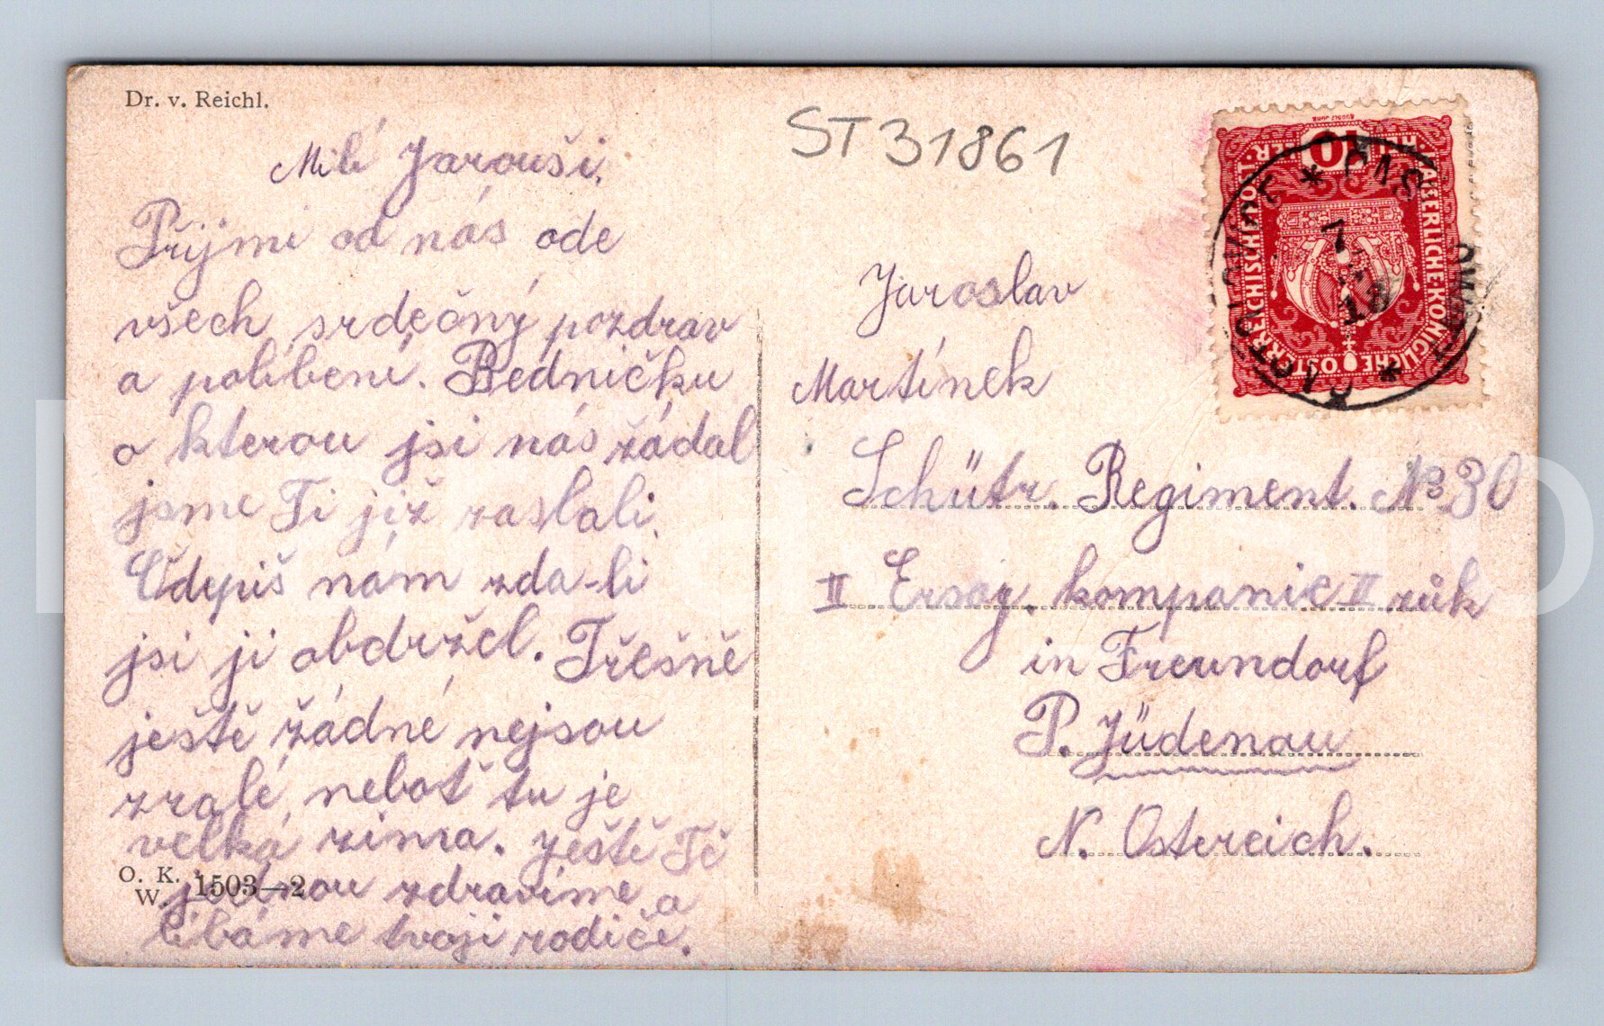 Dr. v. Reichl.
ST 31861
Milí Jarouši.
Přijmi od nás ode
všech srdečný pozdrav
a políbení. Bedničku
o kterou jsi nás žádal
jsme Ti již zaslali.
Odepiš nám zda-li
jsi ji obdržel. Třešně
ještě žádné nejsou
zralé, neboť tu je
velká zima. Ještě Tě
jednou zdravíme a
líbáme tvoji rodiče.
O. K.
W. 1503—2
Jaroslav
Martínek
Schütr. Regiment. No 30
II Ersaz. kompanie II zúk
in Freundorf
P. Jüdenau
N. Ostereich.
KAISERLICHE KÖNIGLICHE ÖSTERREICHISCHE POST
10 HELLER
7
18